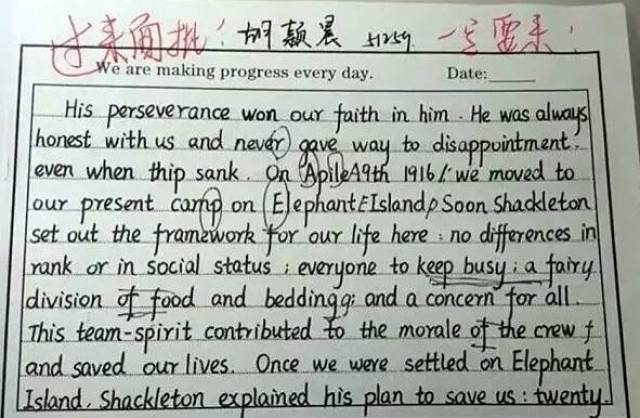 过来面批! 胡颖晨 51259 一定要来!
We are making progress every day. Date:
His perseverance won our faith in him. He was always
honest with us and never gave way to disappointment.
even when thip sank. On Apile A9th 1916 we moved to
our present camp on Elephant Island Soon Shackleton
set out the framework for our life here: no differences in
rank or in social status; everyone to keep busy; a fairy
division of food and beddingg; and a concern for all.
This team-spirit contributed to the morale of the crew
and saved our lives. Once we were settled on Elephant
Island, Shackleton explained his plan to save us: twenty-